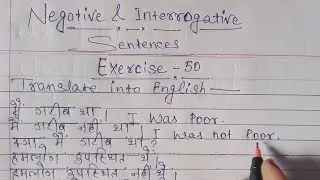 Negative & Interrogative
Sentences
Exercise - 50
Translate into English —
मैं गरीब था । I was Poor.
मैं गरीब नहीं था । I was not Poor.
क्या मैं गरीब था ?
हमलोग उपस्थित थे ।
हमलोग उपस्थित नहीं थे ।